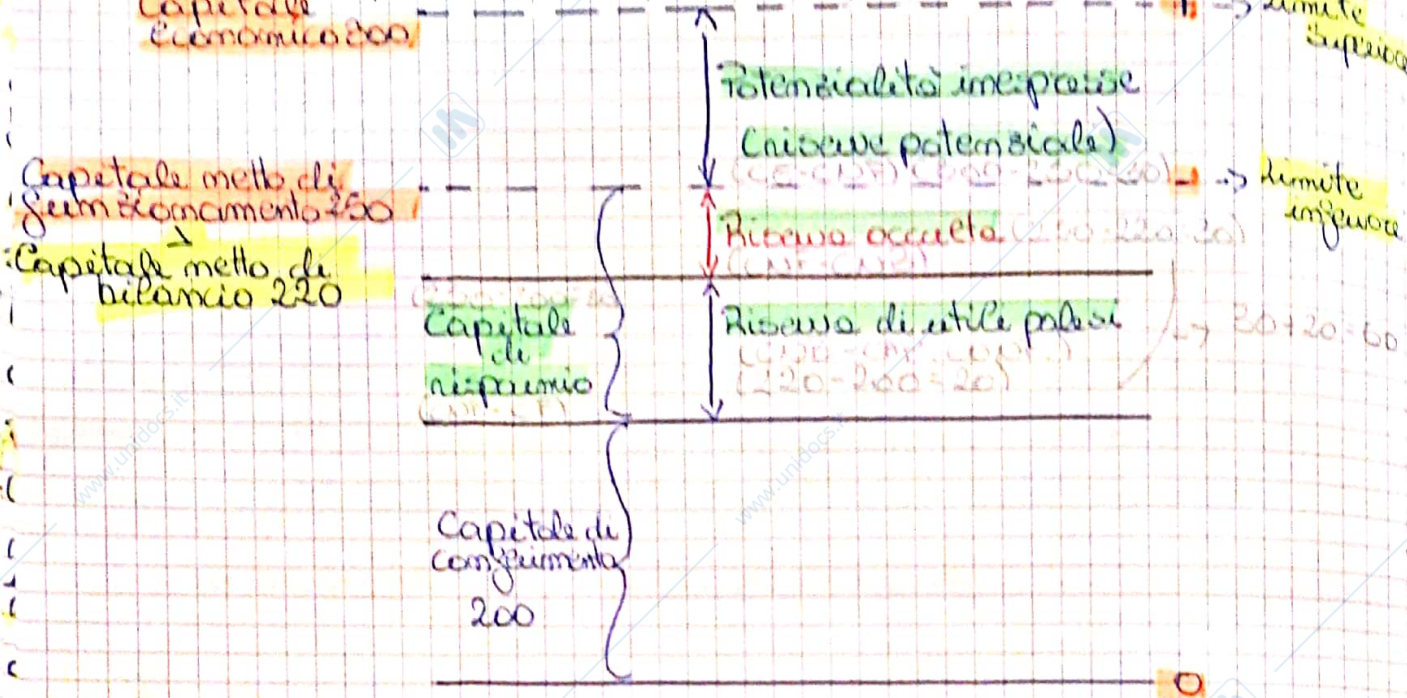 Capitale
economico 300
Limite
superiore
Potenzialità inespresse
(riserve potenziale)
Capitale netto di
funzionamento 250
Limite
inferiore
Riserva occulta
Capitale netto di
bilancio 220
Capitale
di
risparmio
Riserva di utile palesi
(220-200=20)
Capitale di
conferimento
200
0
www.unidocs.it
www.unidocs.it